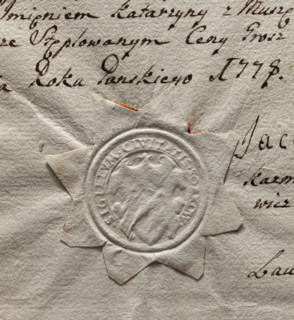 Imieniem Katarzyny z
ze Szplowanym Ceny Grosz
Roku Pańskiego 1778.
SIGILLUM CIVITATIS
Jac
Kazm
wicz
Lau